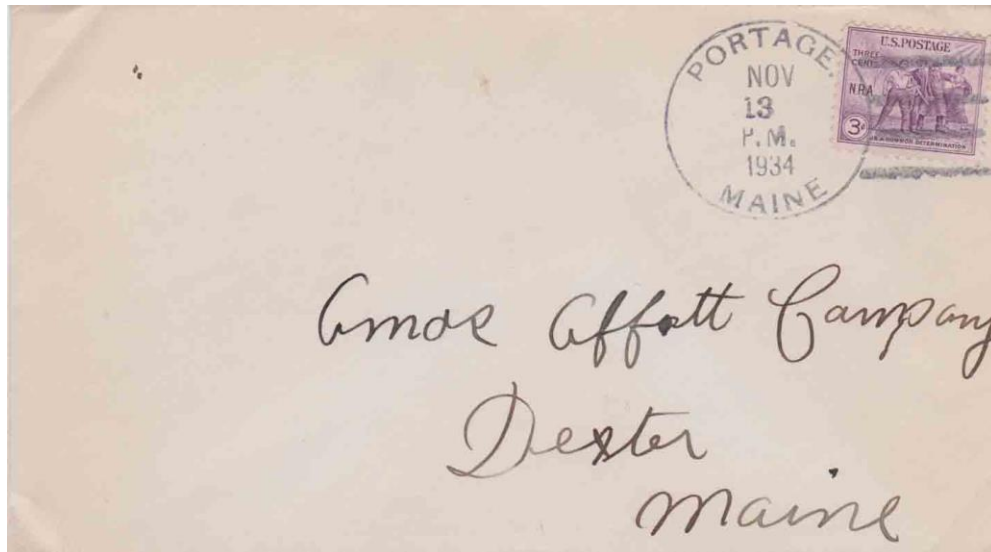 PORTAGE,
NOV
13
P.M.
1934
MAINE
U.S. POSTAGE
THREE
CENTS
N.R.A.
3¢
IN A COMMON DETERMINATION
Amos Affott Company
Dexter
Maine